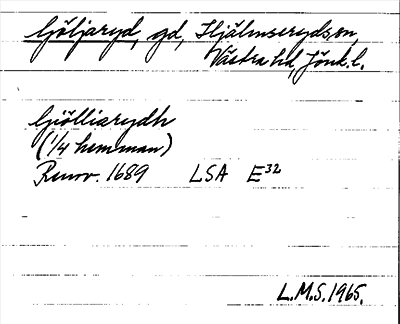 Göljaryd, gd, Hjälmseryds sn,
Västra hd, Jönk. l.
Giölliarydh
(1/4 hemman)
Renov. 1689 LSA E32
L.M.S. 1965.